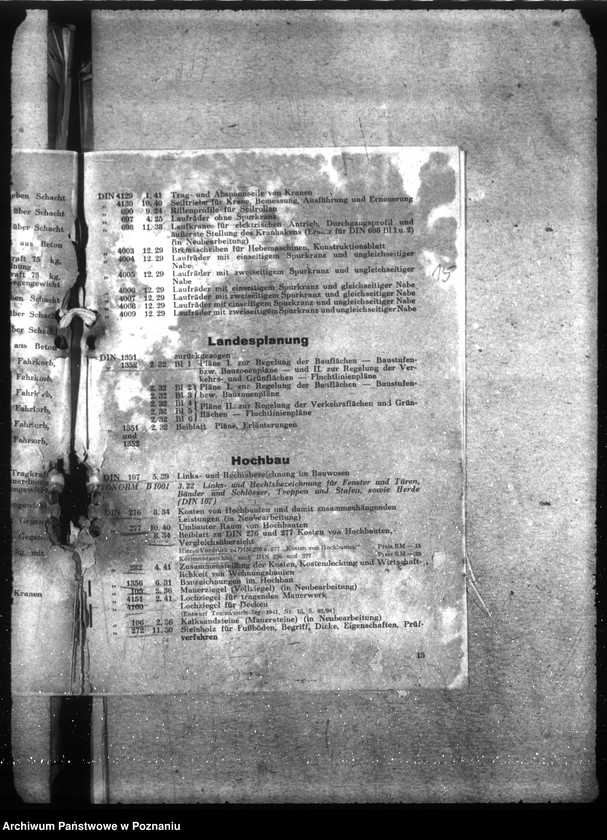 eben Schacht
über Schacht
über Schacht
aus Beton
raft 75 kg,
raft 75 kg,
gengewicht
en Schacht
ber Schacht
ber Schacht
aus Beton
Fahrkorb,
Fahrkorb,
Fahrkorb,
Fahrkorb,
Fahrkorb,
Fahrkorb,
Tragkraf
kg, mit
Kranen
DIN 4129 1. 41 Trag- und Abspannseile von Kranen
„ 4130 10. 40 Seiltriebe für Krane, Bemessung, Ausführung und Erneuerung
„ 690 9. 24 Rillenprofile für Seilrollen
„ 697 4. 25 Laufräder ohne Spurkranz
„ 698 11. 38 Laufkrane für elektrischen Antrieb, Durchgangsprofil und
äußerste Stellung des Kranhakens (Ersatz für DIN 698 Bl 1 u. 2)
(in Neubearbeitung)
„ 4003 12. 29 Bremsscheiben für Hebemaschinen, Konstruktionsblatt
„ 4004 12. 29 Laufräder mit einseitigem Spurkranz und ungleichseitiger
Nabe
„ 4005 12. 29 Laufräder mit zweiseitigem Spurkranz und ungleichseitiger
Nabe
„ 4006 12. 29 Laufräder mit einseitigem Spurkranz und gleichseitiger Nabe
„ 4007 12. 29 Laufräder mit zweiseitigem Spurkranz und gleichseitiger Nabe
„ 4008 12. 29 Laufräder mit einseitigem Spurkranz und ungleichseitiger Nabe
„ 4009 12. 29 Laufräder mit zweiseitigem Spurkranz und ungleichseitiger Nabe
15
Landesplanung
DIN 1351 zurückgezogen
„ 1352 2. 32 Bl 1 Pläne I. zur Regelung der Bauflächen — Baustufen-
bzw. Bauzonenpläne — und II. zur Regelung der Ver-
kehrs- und Grünflächen — Fluchtlinienpläne
2. 32 Bl 2 Pläne I. zur Regelung der Bauflächen — Baustufen-
2. 32 Bl 3 bzw. Bauzonenpläne
2. 32 Bl 4 Pläne II. zur Regelung der Verkehrsflächen und Grün-
2. 32 Bl 5 flächen — Fluchtlinienpläne
2. 32 Bl 6
„ 1351 2. 32 Beiblatt Pläne, Erläuterungen
und
1352
Hochbau
DIN 107 5. 39 Links- und Rechtsbezeichnung im Bauwesen
ÖNORM B 1001 3. 22 Links- und Rechtsbezeichnung für Fenster und Türen,
Bänder und Schlösser, Treppen und Stufen, sowie Herde
(DIN 107)
DIN 276 8. 34 Kosten von Hochbauten und damit zusammenhängenden
Leistungen (in Neubearbeitung)
„ 277 10. 40 Umbauter Raum von Hochbauten
8. 34 Beiblatt zu DIN 276 und 277 Kosten von Hochbauten,
Vergleichsübersicht
Hierzu Vordruck zu DIN 276 u. 277 „Kosten von Hochbauten“ Preis RM —.15
Kostenvoranschlag nach DIN 276 und 277 Preis RM —.25
„ 283 4. 41 Zusammenstellung der Kosten, Kostendeckung und Wirtschaft-
lichkeit von Wohnungsbauten
„ 1356 6. 31 Bauzeichnungen im Hochbau
„ 105 2. 36 Mauerziegel (Vollziegel) (in Neubearbeitung)
„ 4151 2. 41 Lochziegel für tragendes Mauerwerk
„ 4160 Lochziegel für Decken
„ 106 2. 36 Kalksandsteine (Mauersteine) (in Neubearbeitung)
„ 272 11. 30 Steinholz für Fußböden, Begriff, Dicke, Eigenschaften, Prüf-
verfahren
15
Archiwum Państwowe w Poznaniu